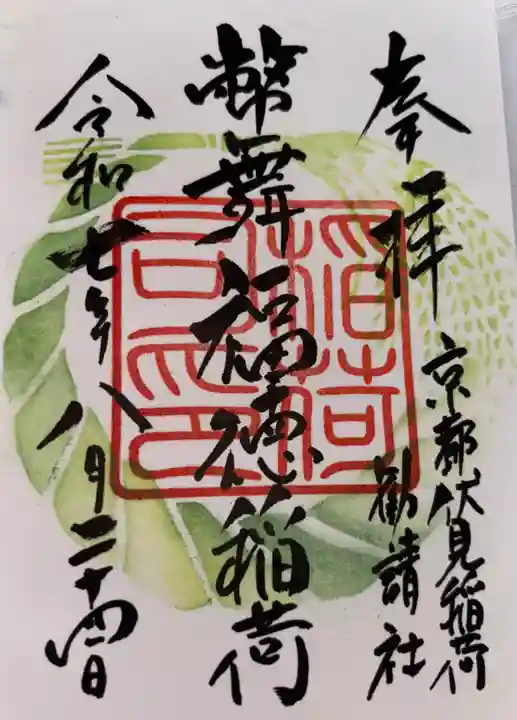 奉拝
京都伏見稲荷
勧請社
幣舞福徳稲荷
令和七年八月二十四日